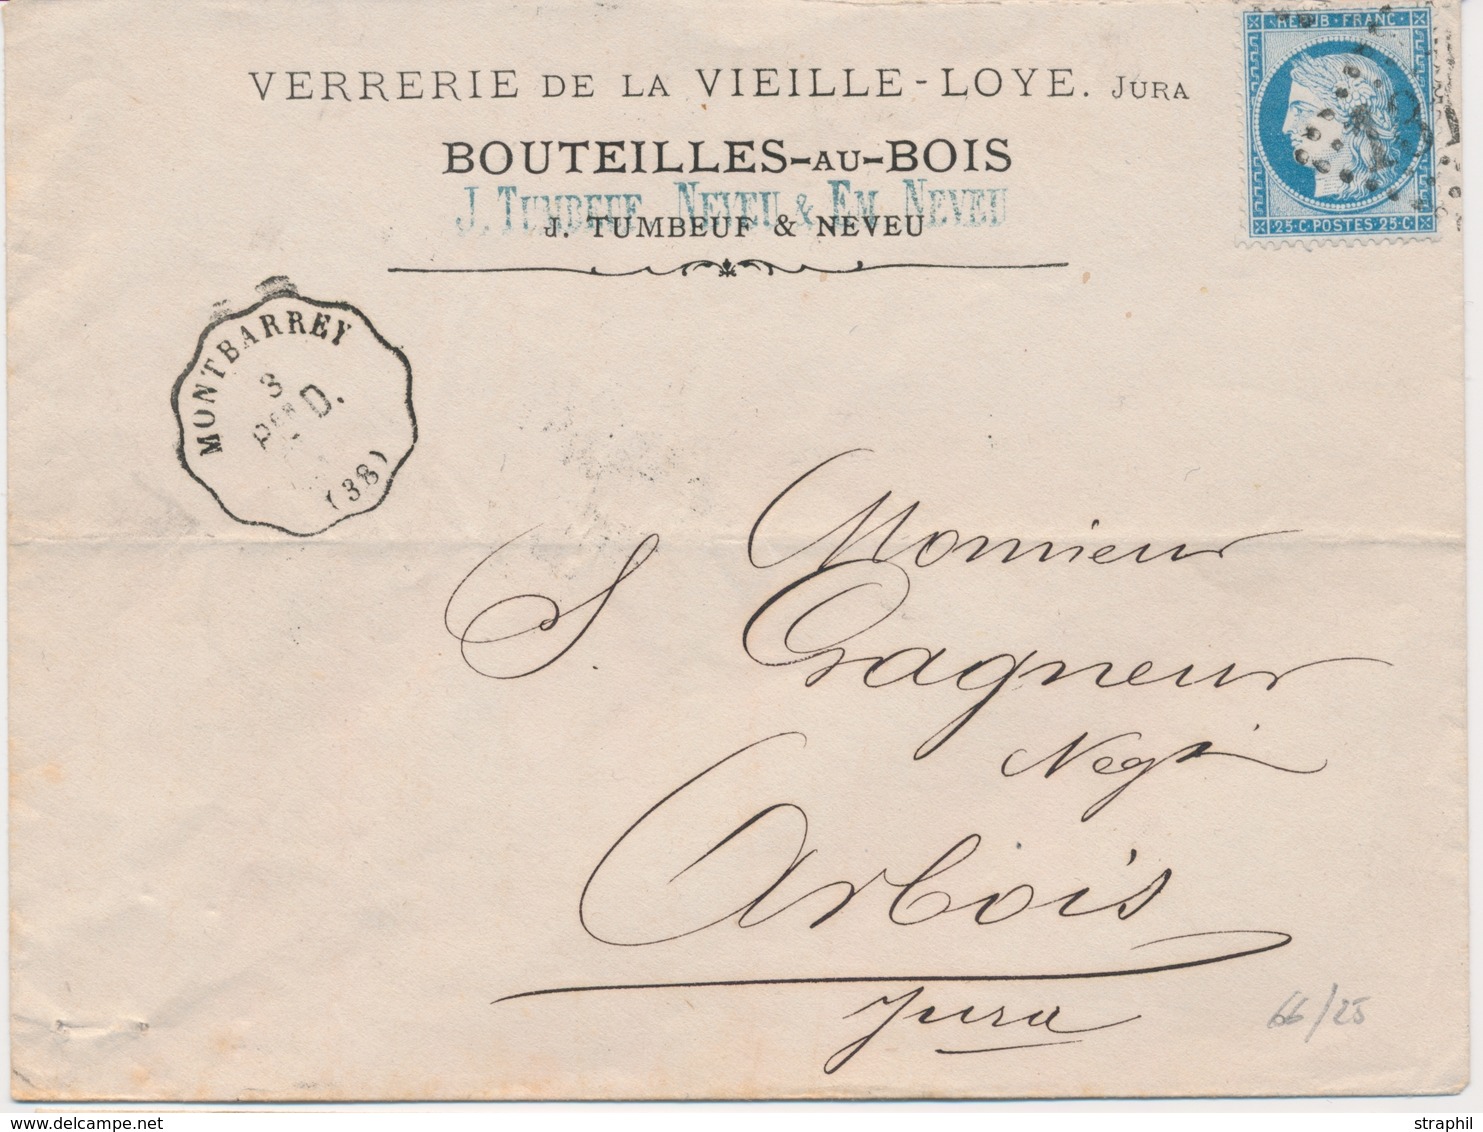 REPUB·FRANC
VERRERIE DE LA VIEILLE-LOYE. JURA
BOUTEILLES-AU-BOIS
J. TUMBEUF, NEVEU & EM. NEVEU
J. TUMBEUF & NEVEU
25·C·POSTES·25·C
MONTBARREY
3
D.
(38)
Monsieur
S. Gagneur
Negt
Arbois
Jura
66/25
delcampe.net
straphil